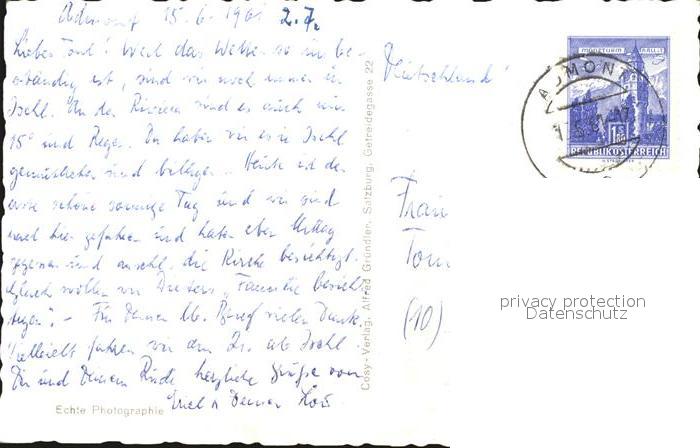 Admont 15.6.1961 2.7.
Liebe Toni! Weil das Wetter so unbe-
ständig ist, sind wir noch immer in
Ischl. An der Riviera sind es auch nur
15° und Regen. Da haben wir es in Ischl
gemütlicher und billiger. Heute ist der
erste schöne sonnige Tag und wir sind
nach hier gefahren und haben eben Mittag
gegessen und anschl. die Kirche besichtigt.
Gleich wollen wir
Für Deinen lb. Brief vielen Dank.
Vielleicht fahren wir am 21. ab Ischl.
Dir und Deinem herzliche Grüße von
Deiner
Echte Photographie
Cosy-Verlag, Alfred Gründler, Salzburg, Getreidegasse 22
Deutschland!
MÜNZTURM HALL i. T.
ADMONT
1.80
REPUBLIK ÖSTERREICH
Frau
Toni
(10)
privacy protection
Datenschutz